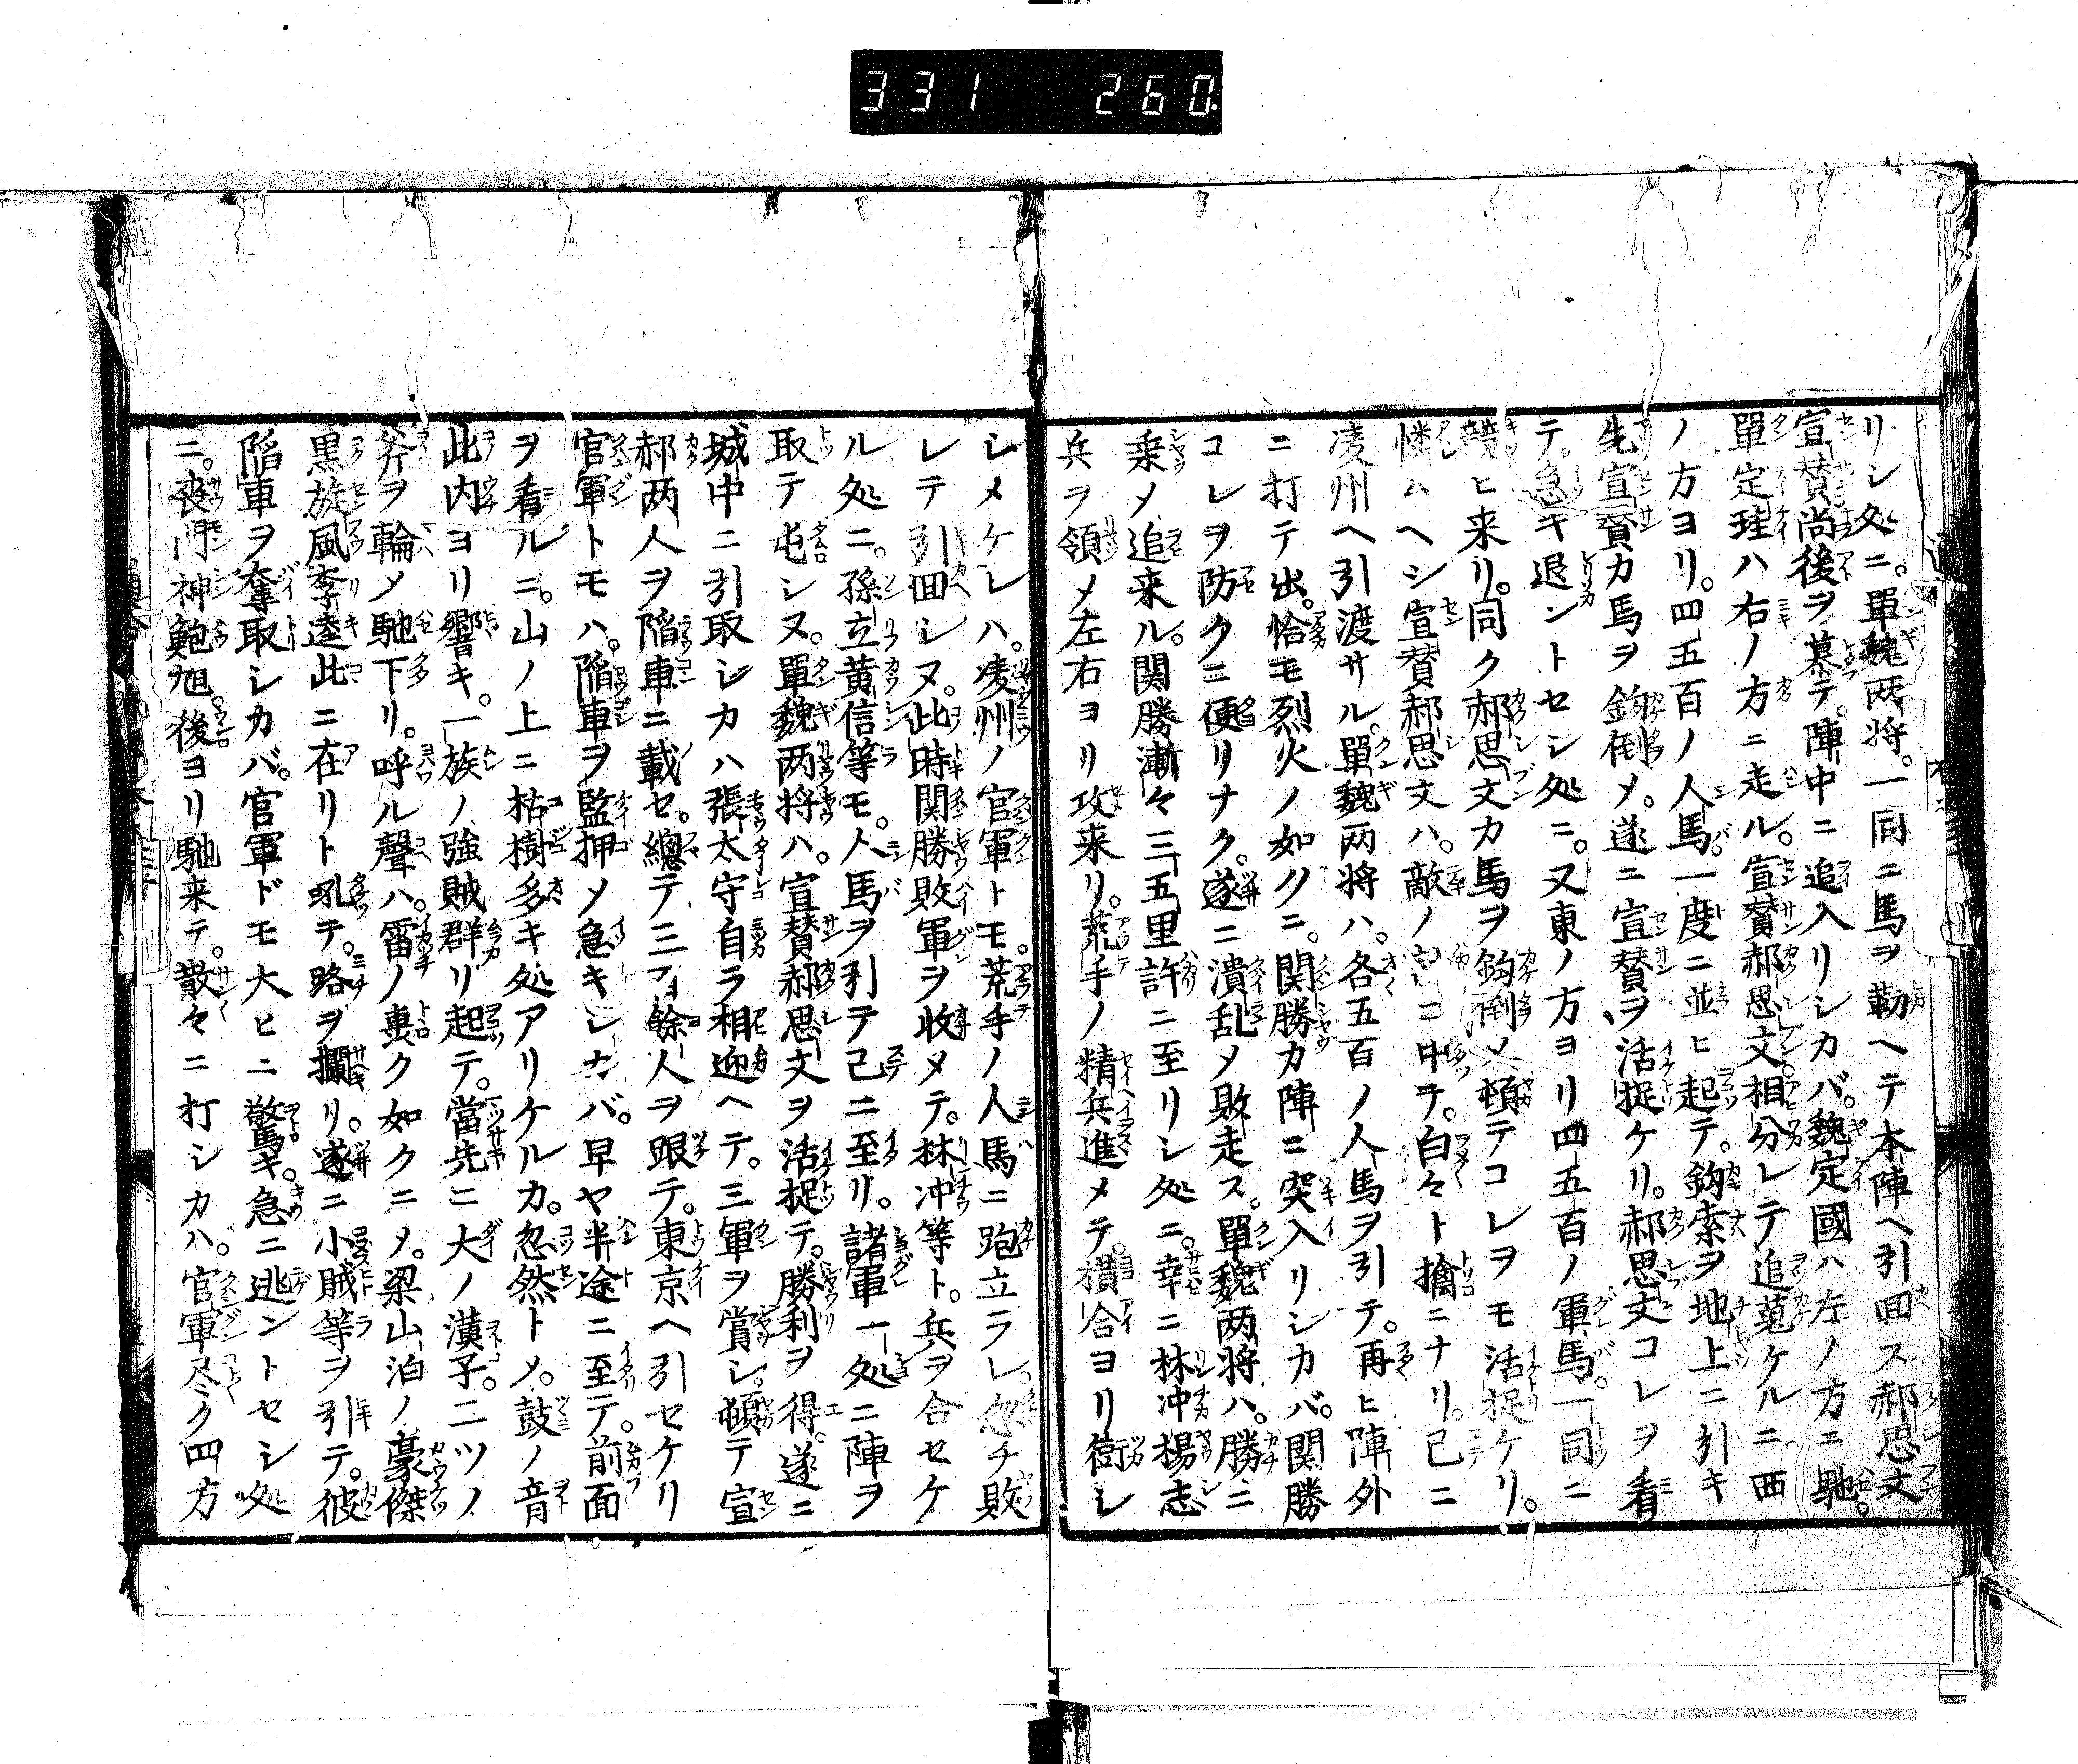 331 260
リシ処ニ。單魏两将。一同ニ馬ヲ勒ヘテ本陣ヘ引回ス郝思文
宣賛尚後ヲ慕テ。陣中ニ追入リシカバ。魏定國ハ左ノ方ニ馳。
單定珪ハ右ノ方ニ走ル。宣賛郝思文。相分レテ追蒐ケルニ西
ノ方ヨリ。四五百ノ人馬。一度ニ並ヒ起テ。鈎索ヲ地上ニ引キ
先宣賛カ馬ヲ鈎倒メ。遂ニ宣賛ヲ活捉ケリ。郝思文コレヲ看
テ。急キ退ントセシ処ニ。又東ノ方ヨリ四五百ノ軍馬。一同ニ
競ヒ来リ。同ク郝思文カ馬ヲ鈎倒メ頓テコレヲモ活捉ケリ。
憐ムヘシ宣賛郝思文ハ。敵ノ コ中テ。白々ト擒ニナリ。已ニ
凌州ヘ引渡サル。單魏两将ハ。各五百ノ人馬ヲ引テ。再ヒ陣外
ニ打テ出。恰モ烈火ノ如クニ。関勝カ陣ニ突入リシカバ。関勝
コレヲ防クニ便リナク。遂ニ潰乱メ敗走ス。單魏两将ハ。勝ニ
乗メ追来ル。関勝漸々三五里許ニ至リシ処ニ。幸ニ林冲楊志
兵ヲ領メ左右ヨリ攻来リ。荒手ノ精兵進メテ。横合ヨリ衝シ
シメケレハ。凌州ノ官軍トモ。荒手ノ人馬ニ跑立ラレ。忽チ敗
レテ引回シヌ。此時関勝敗軍ヲ收メテ。林冲等ト。兵ヲ合セケ
ル処ニ。孫立黄信等モ。人馬ヲ引テ已ニ至リ。諸軍一処ニ陣ヲ
取テ屯シヌ。單魏两将ハ。宣賛郝思文ヲ活捉テ。勝利ヲ得。遂ニ
城中ニ引取シカハ張太守自ラ相迎ヘテ。三軍ヲ賞シ。頓テ宣
郝两人ヲ陥車ニ載セ。總テ三百餘人ヲ跟テ。東京ヘ引セケリ
官軍トモハ。陥車ヲ監押メ急キシカバ。早ヤ半途ニ至テ。前面
ヲ看ルニ。山ノ上ニ枯樹多キ処アリケルカ。忽然トメ。鼓ノ音
此内ヨリ響キ。一族ノ強賊群リ起テ。當先ニ大ノ漢子。二ツノ
斧ヲ輪メ馳下リ。呼ル聲ハ。雷ノ轟ク如クニメ。梁山泊ノ豪傑
黒旋風李逵此ニ在リト吼テ。路ヲ攔リ。遂ニ小賊等ヲ引テ。彼
陥車ヲ奪取シカバ。官軍ドモ大ヒニ驚キ。急ニ逃ントセシ処
ニ。喪門神鮑旭。後ヨリ馳来テ。散々ニ打シカハ。官軍尽ク四方